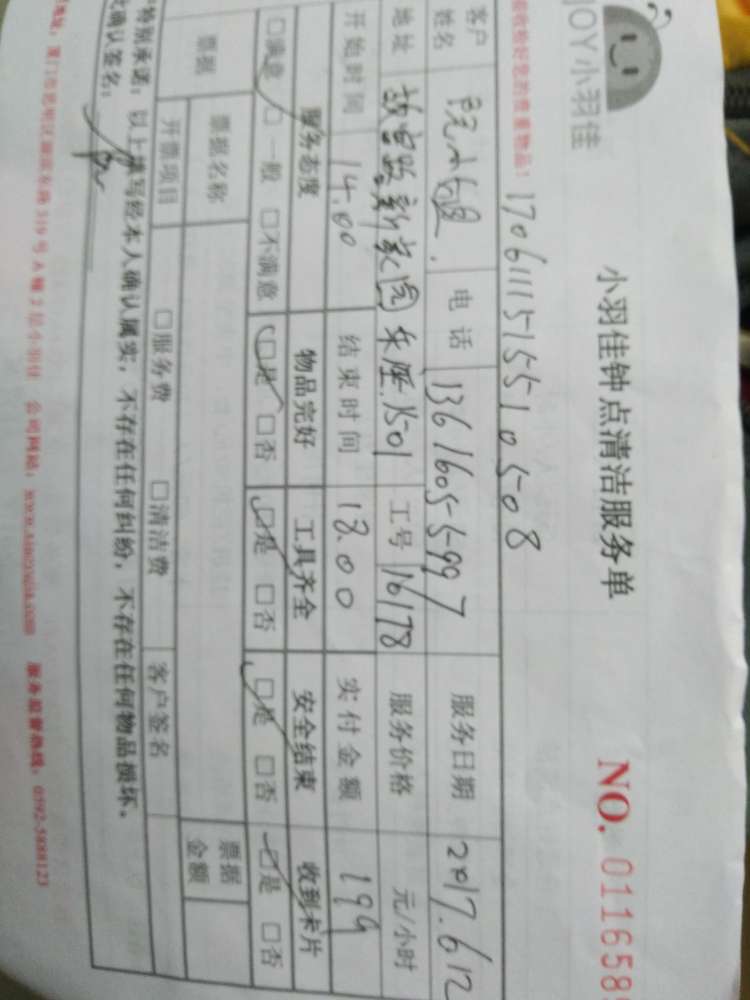 JOY小羽佳
小羽佳钟点清洁服务单
NO. 011658
170611151551 0508
您的贵重物品!
客户姓名 阮小姐 电话 13616055997 服务日期 2017.6.12
地址 故宫路新家园 座1501 工号 16178 服务价格 元/小时
开始时间 14.00 结束时间 18.00 实付金额 199
服务态度 物品完好 工具齐全 安全结束 收到卡片
□满意 □一般 □不满意 □是 □否 □是 □否 □是 □否 □是 □否
票据 票据名称 票据金额
开票项目 □服务费 □清洁费 客户签名
特别承诺:以上填写经本人确认属实,不存在任何纠纷,不存在任何物品损坏。
确认签名:
厦门市思明区 319号A幢2层小羽佳 公司网站: 服务监督热线:0592-5888123